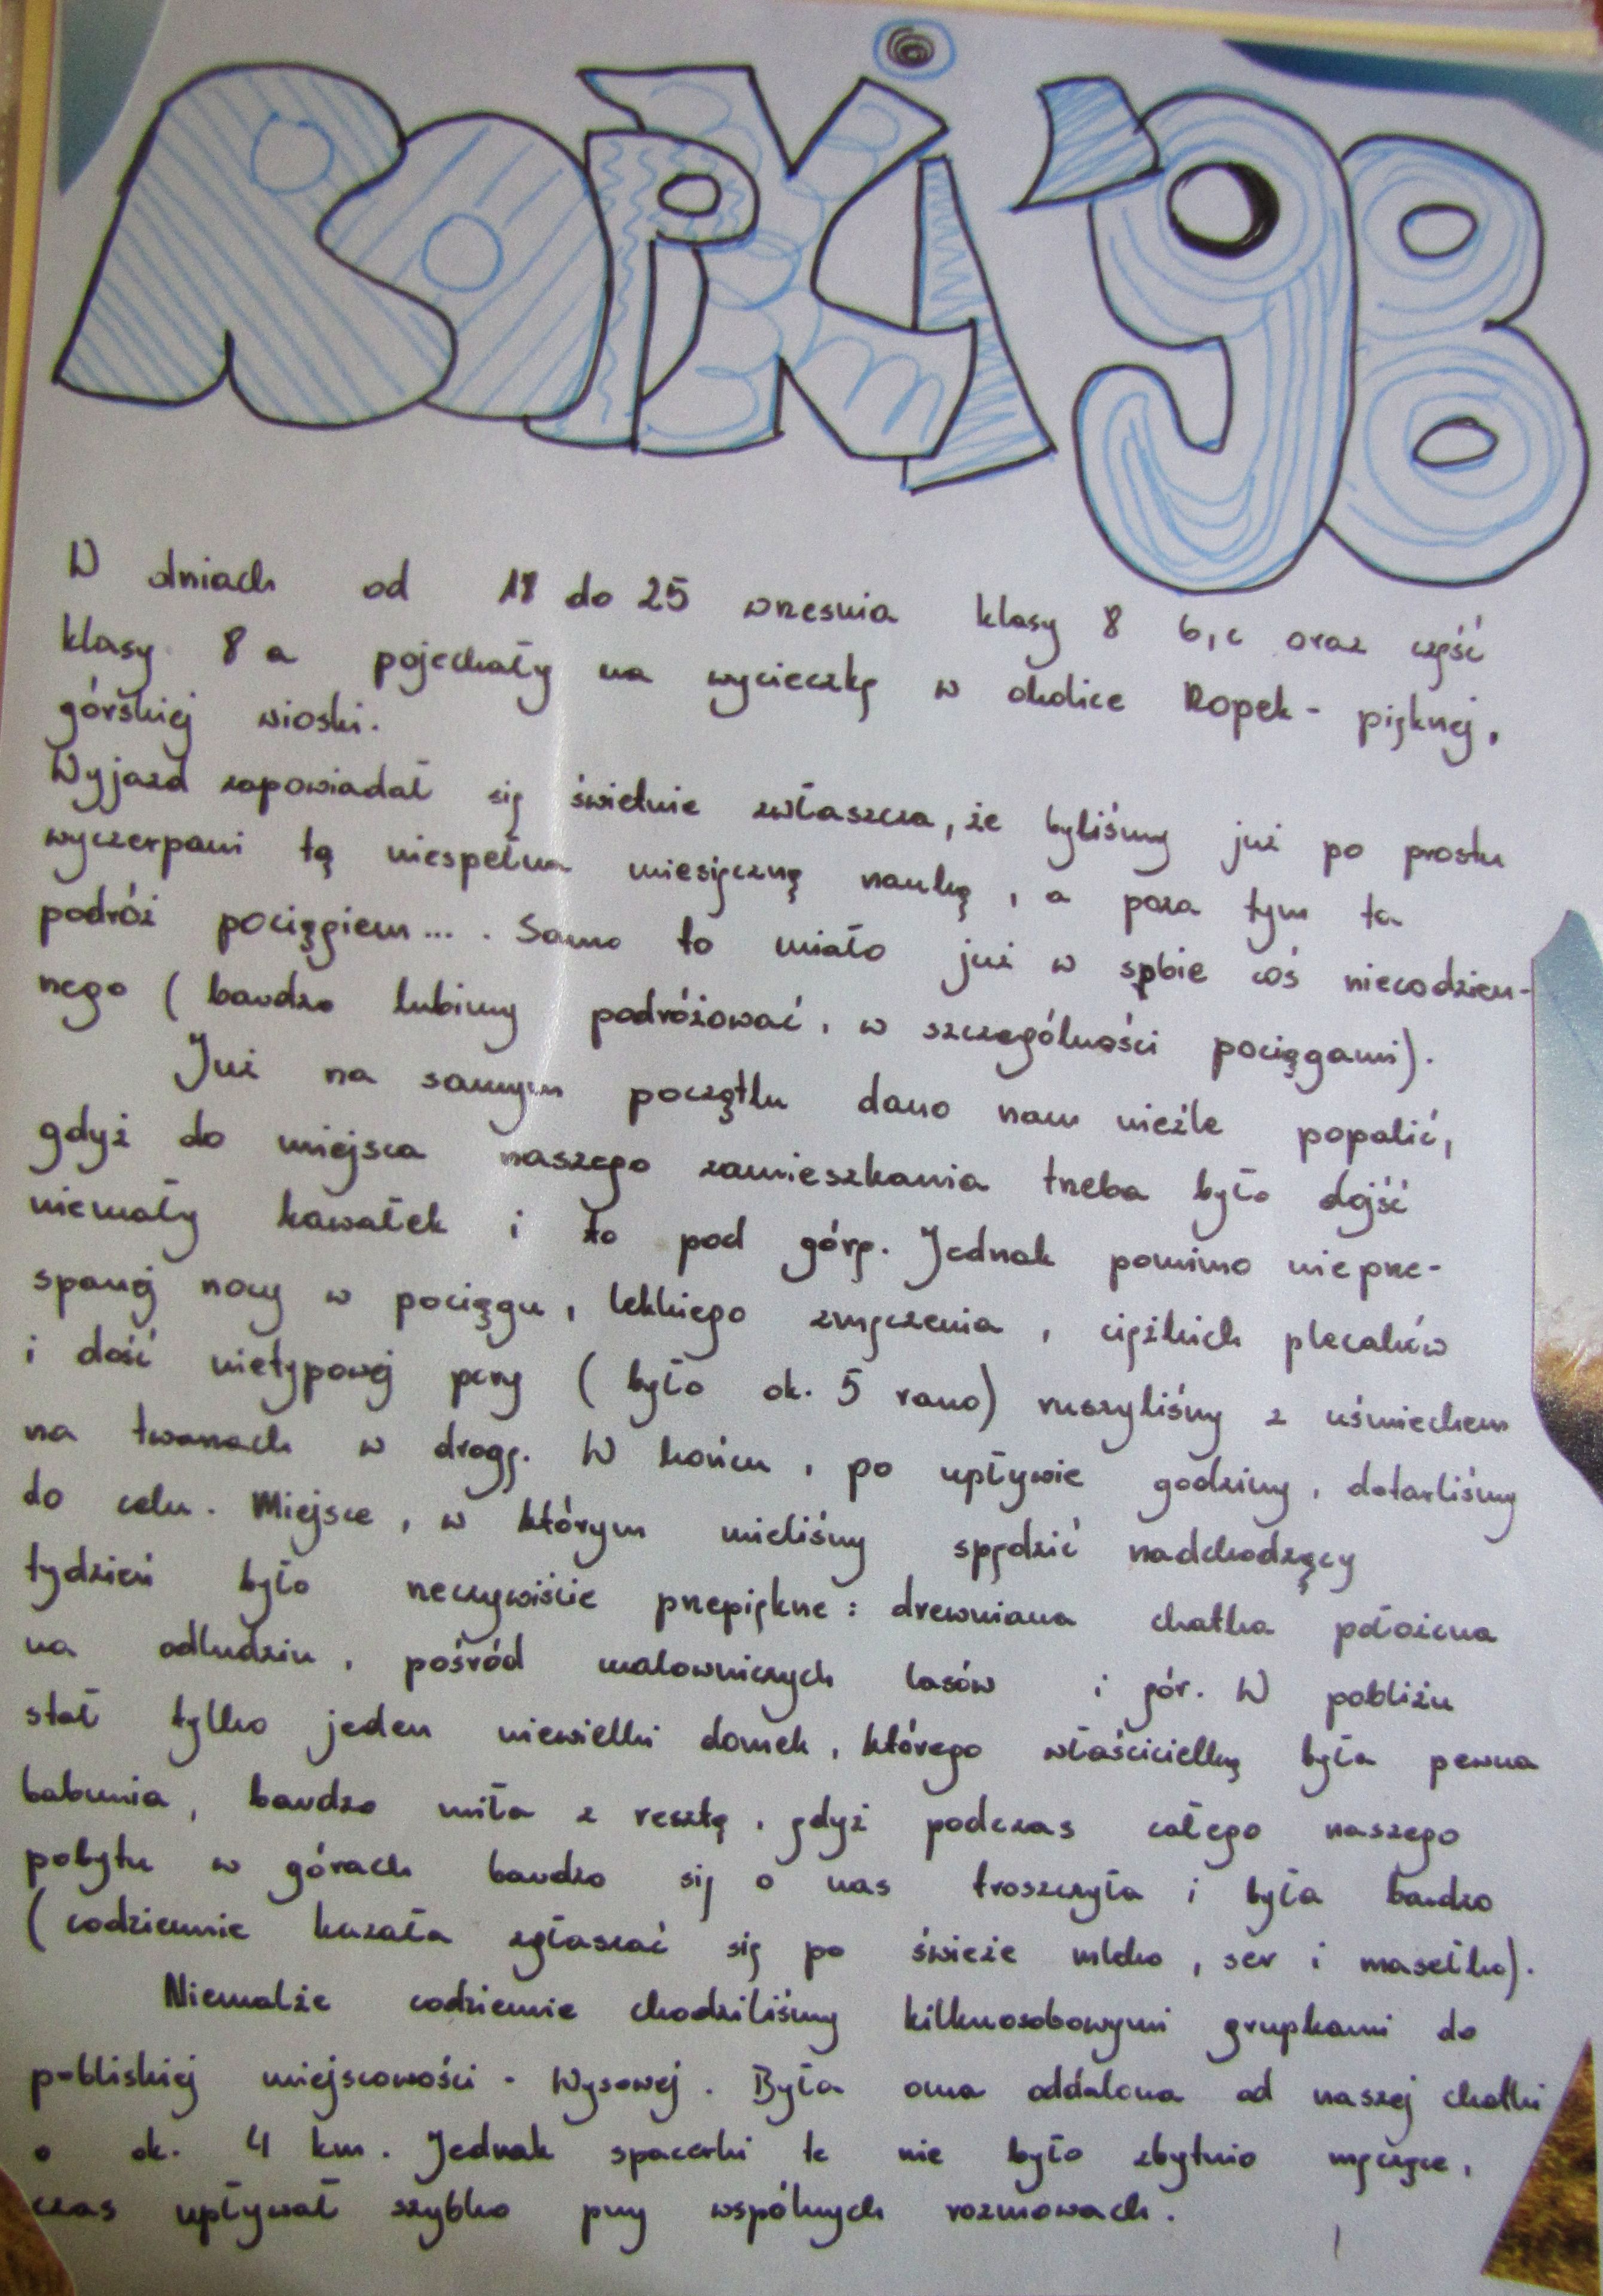 ROPKi '98
W dniach od 18 do 25 wrzesnia klasy 8 b,c oraz część
klasy 8 a pojechały na wycieczkę w okolice Ropek - pięknej,
górskiej wioski.
Wyjazd zapowiadał się świetnie zwłaszcza, że byliśmy już po prostu
wyczerpani tą niespełna miesięczną nauką, a poza tym ta
podróż pociągiem... . Samo to miało już w sobie coś niecodzien-
nego (bardzo lubimy podróżować, w szczególności pociągami).
Już na samym początku dano nam nieźle popalić,
gdyż do miejsca naszego zamieszkania trzeba było dojść
niemały kawałek i to pod górę. Jednak pomimo nieprze-
spanej nocy w pociągu, lekkiego zmęczenia, ciężkich plecaków
i dość nietypowej pory (było ok. 5 rano) ruszyliśmy z uśmiechem
na twarzach w drogę. W końcu, po upływie godziny, dotarliśmy
do celu. Miejsce, w którym mieliśmy spędzić nadchodzący
tydzień było rzeczywiście przepiękne: drewniana chatka położona
na odludziu, pośród malowniczych lasów i gór. W pobliżu
stał tylko jeden niewielki domek, którego właścicielką była pewna
babunia, bardzo miła z resztą, gdyż podczas całego naszego
pobytu w górach bardzo się o nas troszczyła i była bardzo
(codziennie kazała zgłaszać się po świeże mleko, ser i masełko).
Niemalże codziennie chodziliśmy kilkuosobowymi grupkami do
pobliskiej miejscowości - Wysowej. Była ona oddalona od naszej chatki
o ok. 4 km. Jednak spacerki te nie było zbytnio męczące,
czas upływał szybko przy wspólnych rozmowach.